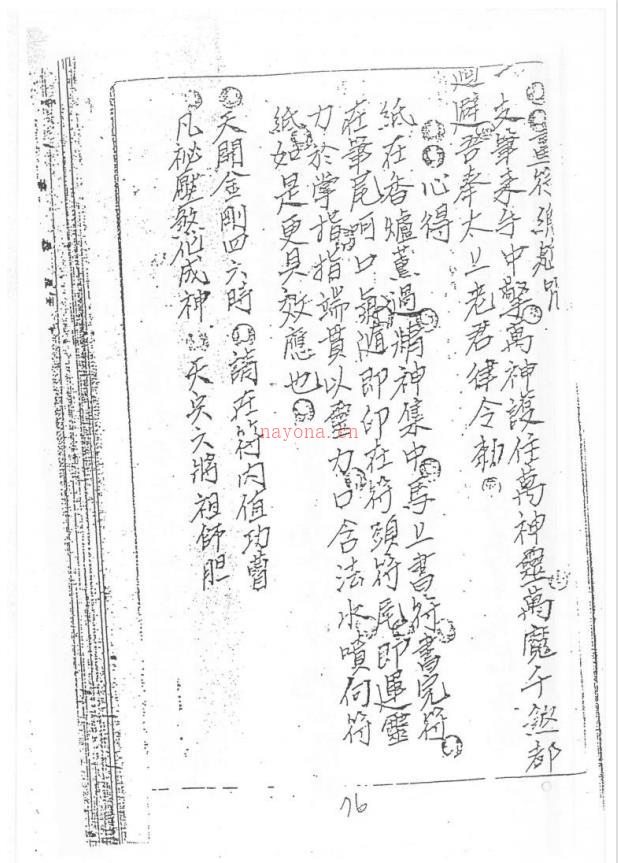 畫符總範咒
支筆來手中擎萬神護佐萬神靈萬魔千煞都
迴避吾奉太上老君律令勅
心得
紙在香爐薰過精神集中馬上書符書完符
在筆尾呵口氣隨即印在符頭符尾即運靈
力於掌指指端貫以靈力口含法水噴向符
紙如是更具效應也
天開金剛四六時 請在符內值功曹
凡祕壓煞化成神 天兵六將祖師胆
nayona.cn
76